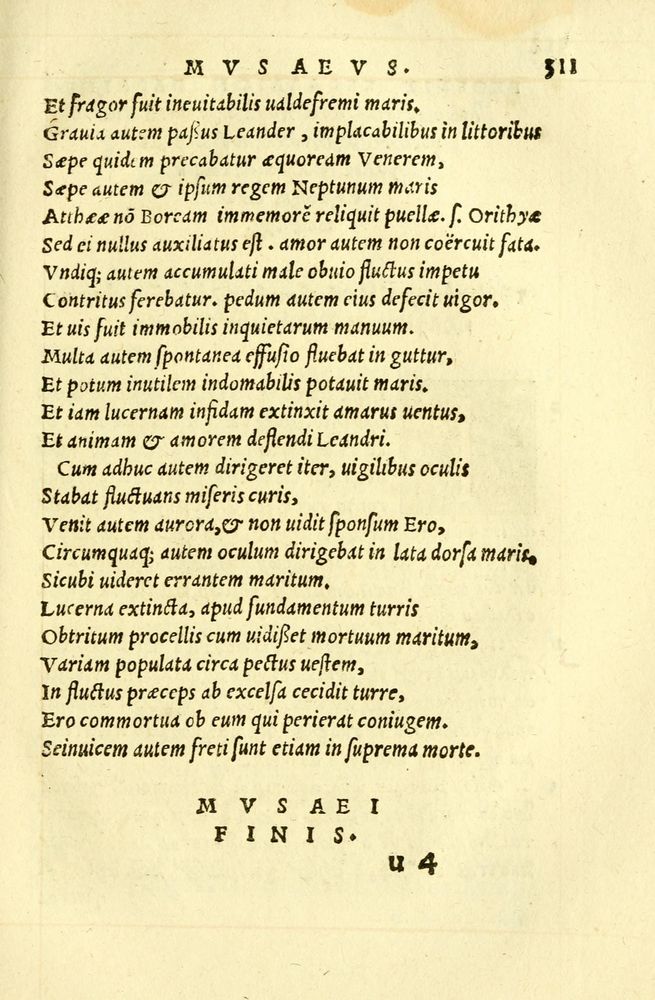 MVSAEVS. 311
Et fragor fuit ineuitabilis ualdefremi maris.
Grauia autem paßus Leander, implacabilibus in littoribus
Sæpe quidem precabatur æquoream Venerem,
Sæpe autem & ipsum regem Neptunum maris
Atthææ nō Boream immemorē reliquit puellæ. ſ. Orithyæ
Sed ei nullus auxiliatus eſt. amor autem non coërcuit fata.
Vndiq; autem accumulati male obuio fluctus impetu
Contritus ferebatur. pedum autem eius defecit uigor.
Et uis fuit immobilis inquietarum manuum.
Multa autem ſpontanea effuſio fluebat in guttur,
Et potum inutilem indomabilis potauit maris.
Et iam lucernam infidam extinxit amarus uentus,
Et animam & amorem deflendi Leandri.
Cum adhuc autem dirigeret iter, uigilibus oculis
Stabat fluctuans miſeris curis,
Venit autem aurora, & non uidit ſponſum Ero,
Circumquaq; autem oculum dirigebat in lata dorſa maris.
Sicubi uideret errantem maritum.
Lucerna extincta, apud fundamentum turris
Obtritum procellis cum uidißet mortuum maritum,
Variam populata circa pectus ueſtem,
In fluctus præceps ab excelſa cecidit turre,
Ero commortua ob eum qui perierat coniugem.
Seinuicem autem freti ſunt etiam in ſuprema morte.
MVSAEI
FINIS.
u 4